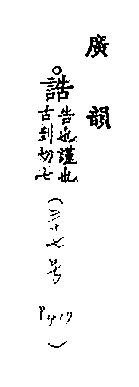 廣韻
○誥 告也謹也
古到切七
(三十七号
P417)